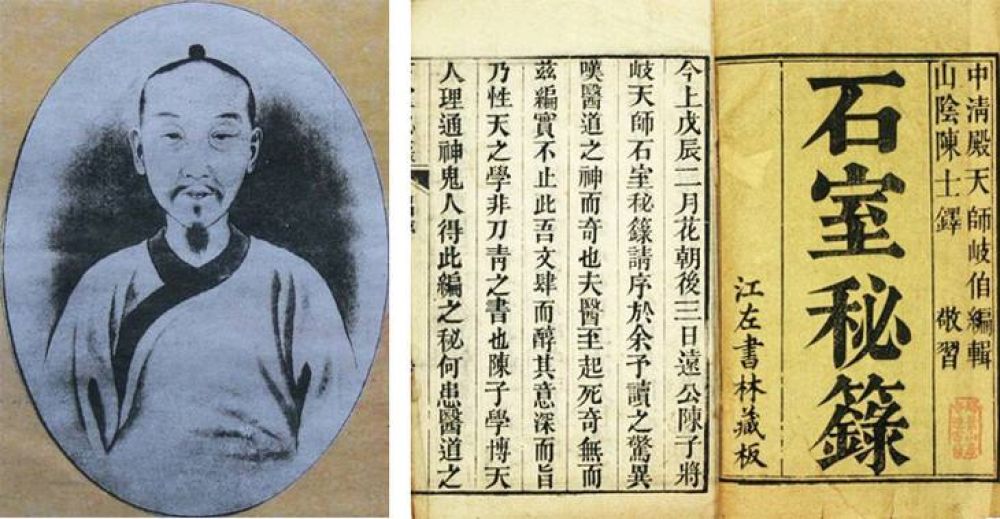 中清殿天師岐伯編輯
山陰陳士鐸 敬習
石室秘籙
江左書林藏板
今上戊辰二月花朝後三日遠公陳子將
岐天師石室秘籙請序於余予讀之驚異
嘆醫道之神而奇也夫醫至起死奇無而
茲編實不止此吾文肆而醇其意深而旨
乃性天之學非刀靑之書也陳子學博天
人理通神鬼人得此編之秘何患醫道之